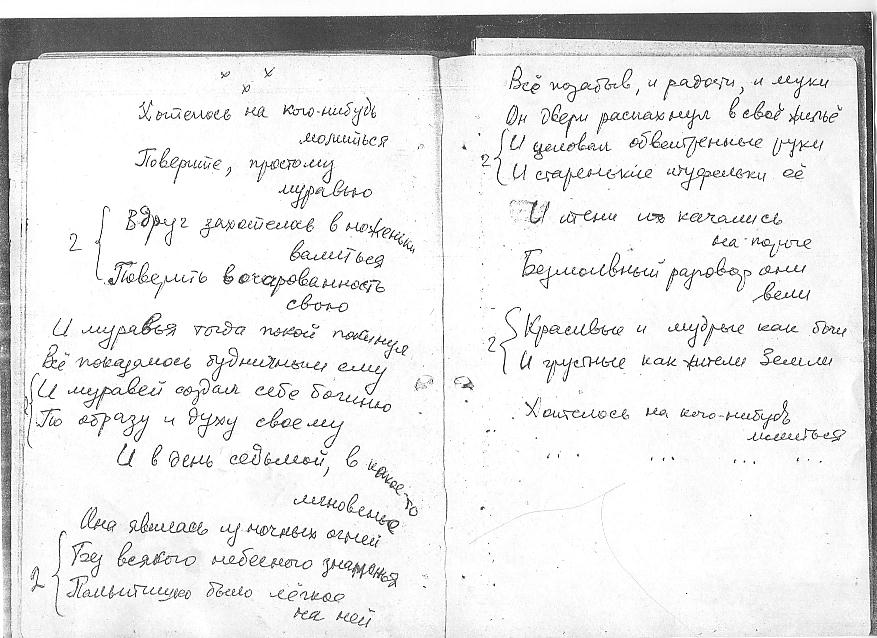 x x x
Хотелось на кого-нибудь
молиться
Поверите, простому
муравью
Вдруг захотелось в ноженьки
валиться
2
Поверить в очарованность
свою
И муравья тогда покой покинул
Всё показалось будничным ему
И муравей создал себе богиню
2
По образу и духу своему
И в день седьмой, в какое-то
мгновенье
Она явилась из ночных огней
Без всякого небесного знаменья
2
Пальтишко было лёгкое
на ней
Всё позабыв, и радости, и муки
Он двери распахнул в своё жильё
И целовал обветренные руки
2
И старенькие туфельки её
И тени их качались
на пороге
Безмолвный разговор они
вели
Красивые и мудрые как боги
2
И грустные как жители Земли
Хотелось на кого-нибудь
молиться
... ... ... ...